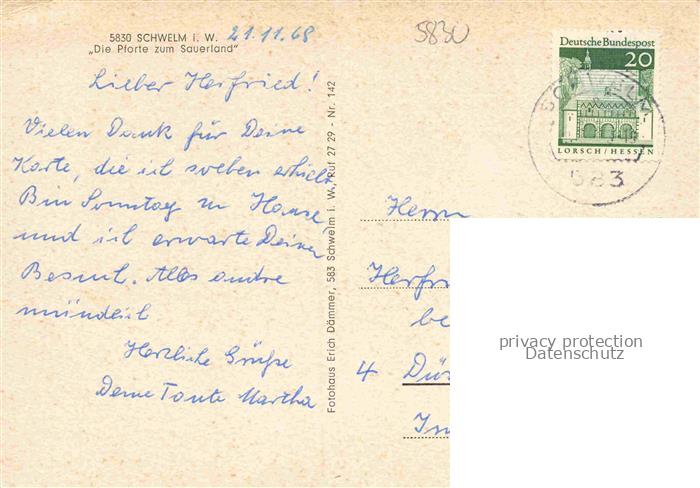 5830 SCHWELM i. W. 21.11.68
„Die Pforte zum Sauerland"
5830
Lieber Herfried!
Vielen Dank für Deine
Karte, die ich soeben erhielt.
Bin Sonntag zu Hause,
und ich erwarte Deinen
Besuch. Alles andre
mündlich
Herzliche Grüße
Deine Tante Martha
Fotohaus Erich Dämmer, 583 Schwelm i. W., Ruf 27 29 - Nr. 142
Deutsche Bundespost
20
LORSCH/HESSEN
583
Herrn
Herfri
be
4 Düs
In
privacy protection
Datenschutz